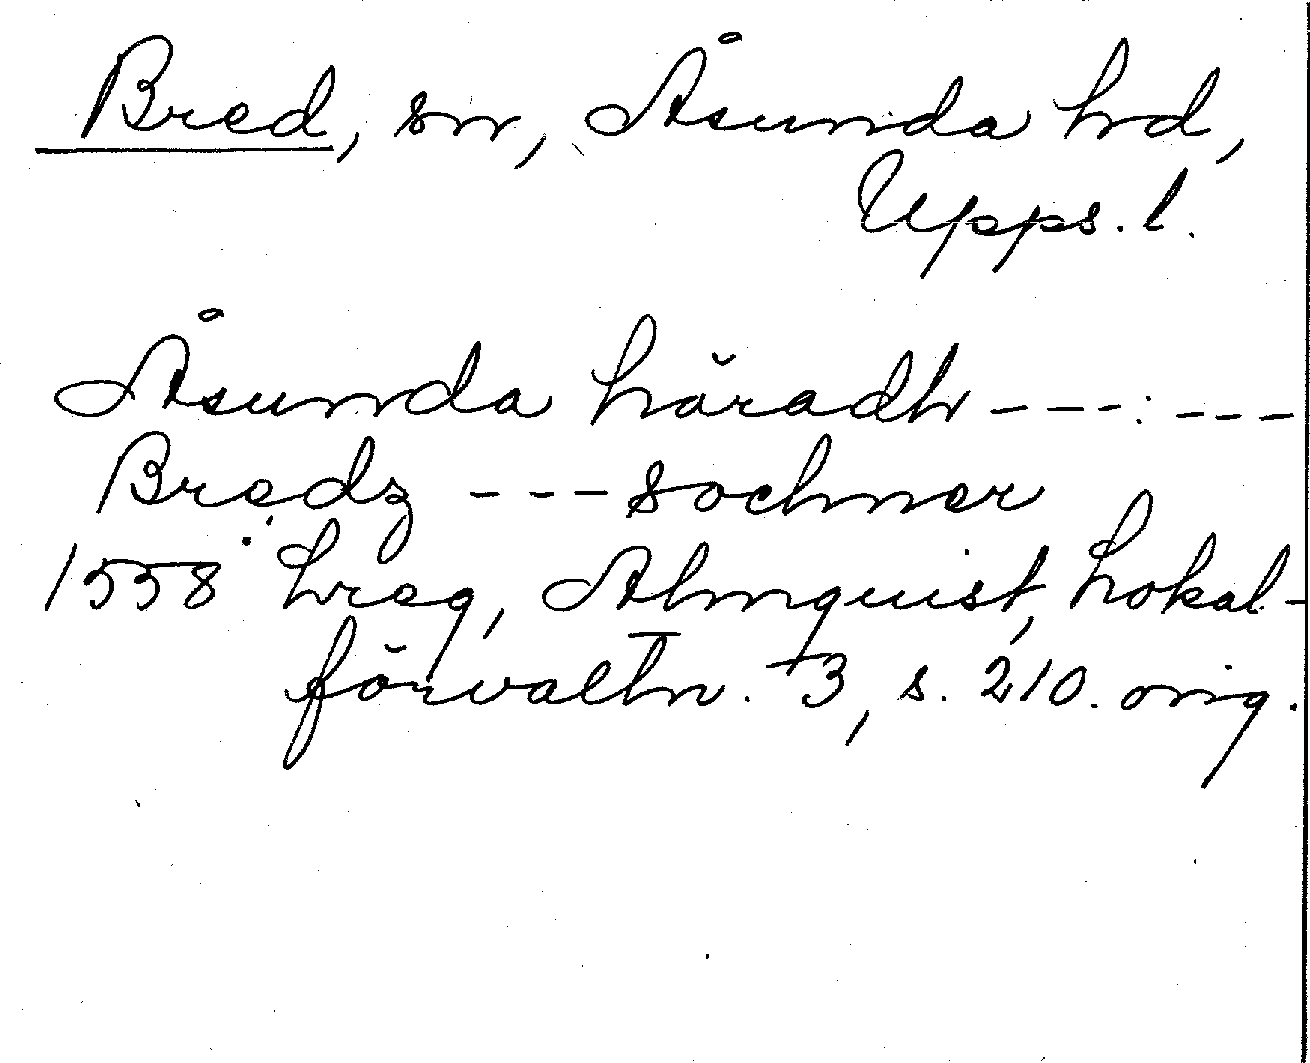 Bred, sn, Åsunda hd,
Upps. l.
Åsunda häradh ---:---
Bredz --- sochner
1558 hreg, Almquist, Lokal-
förvaltn. 3, s. 210. orig.